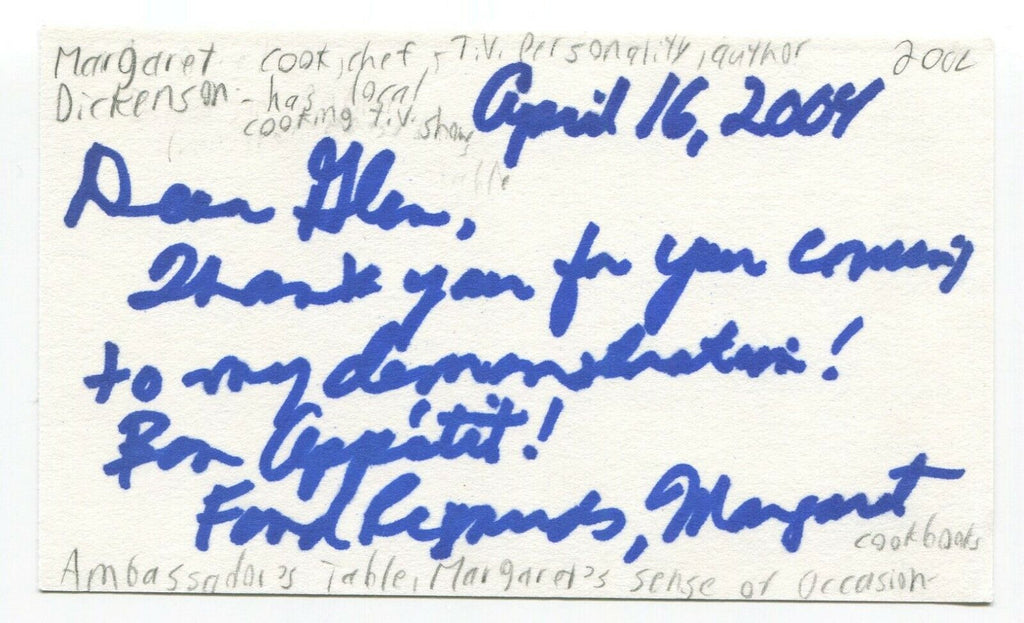 Margaret cook, chef, T.V. personality, author
Dickenson - has local
cooking T.V. show
April 16, 2004
Dear Glen,
Thank you for your coming
to my demonstration!
Bon Appétit!
Fond Regards, Margaret
cookbooks
Ambassador's Table, Margaret's Sense of Occasion